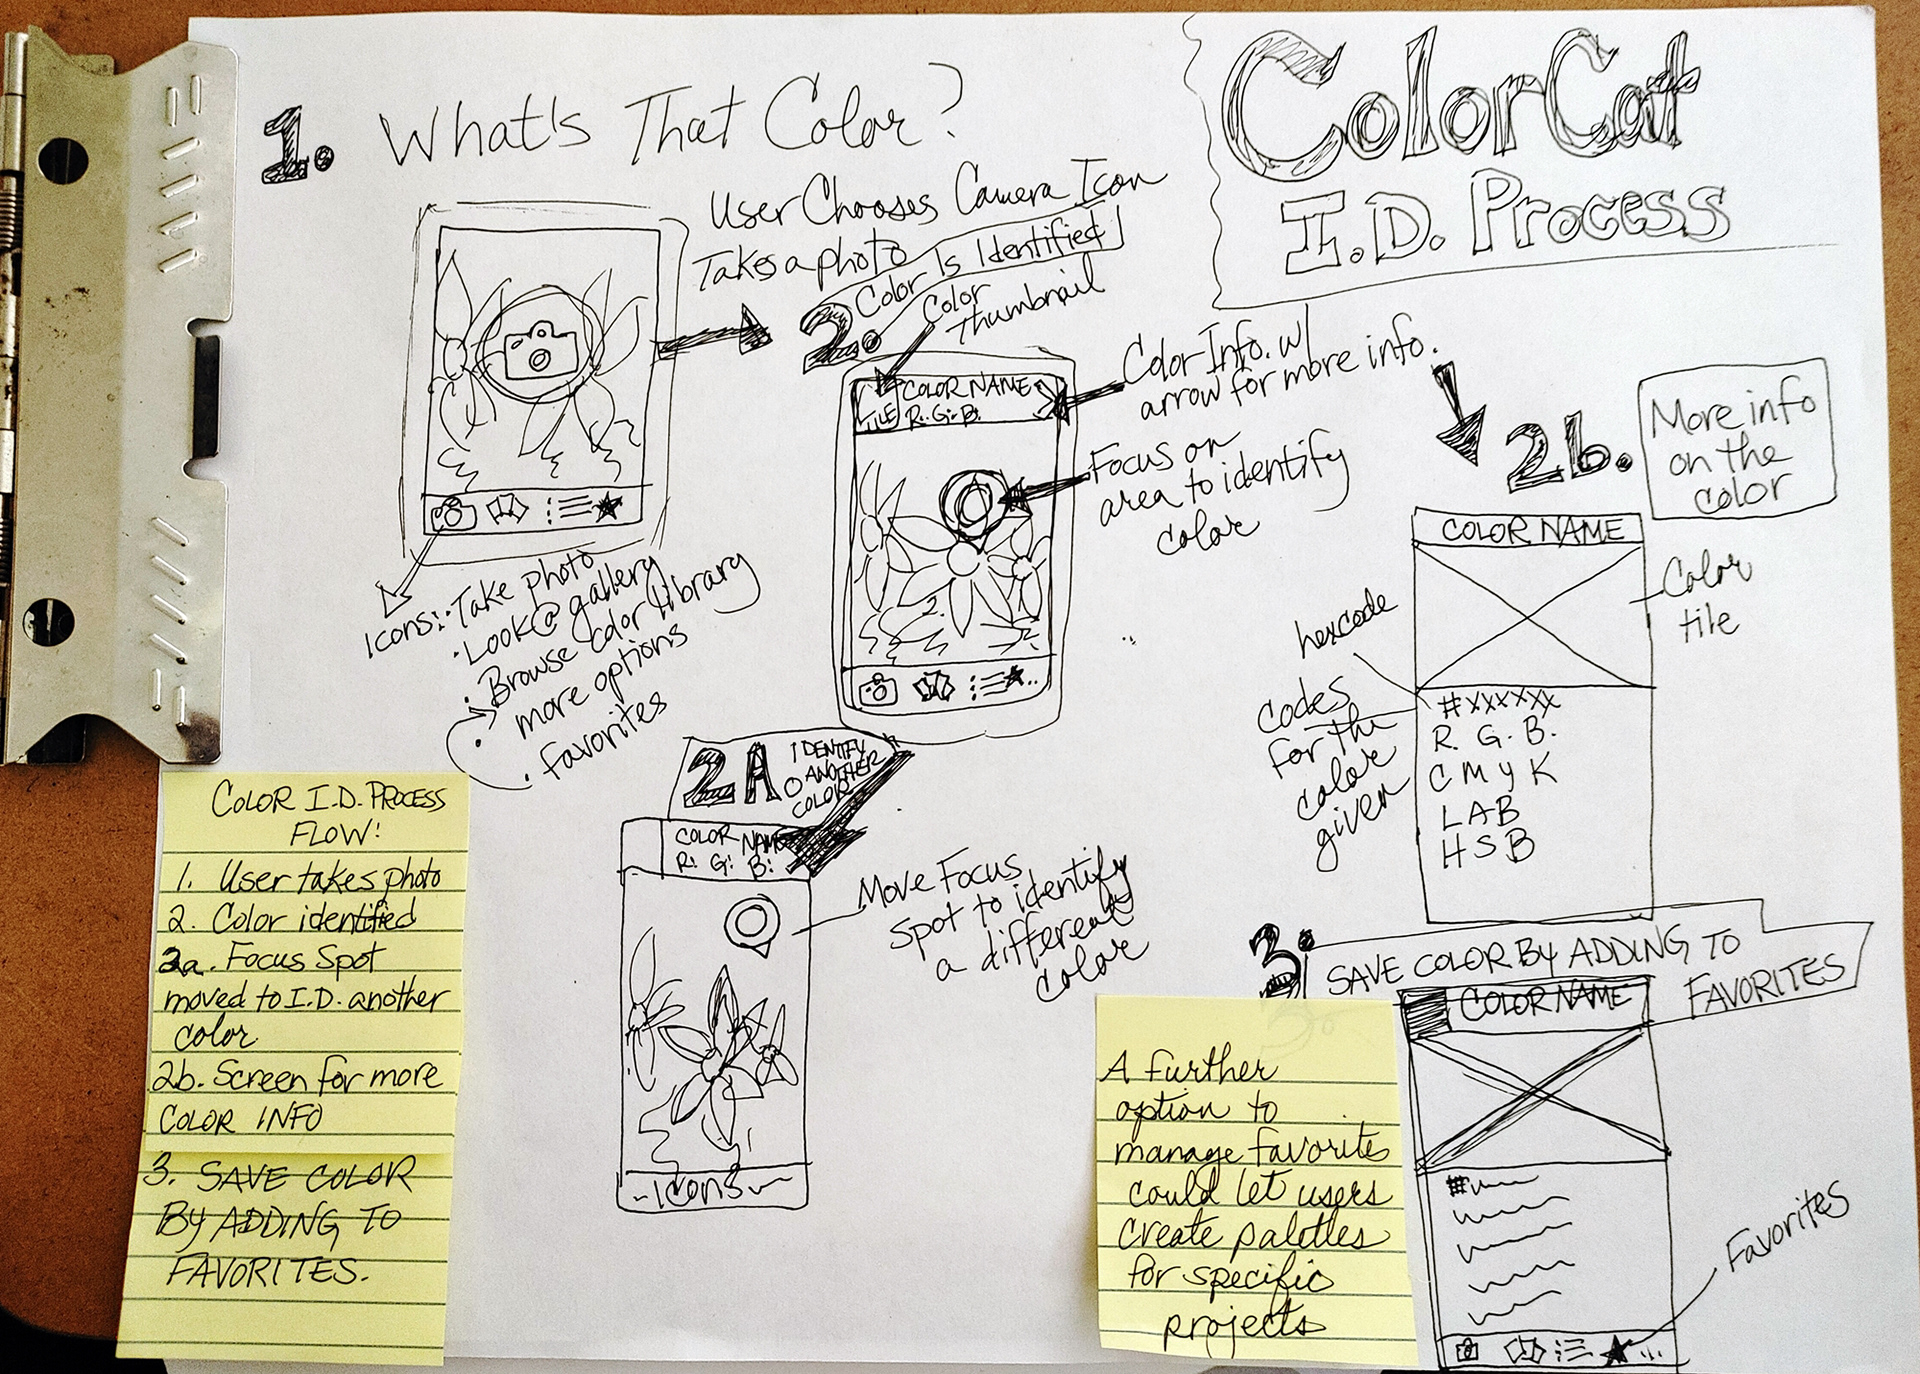 1. What's That Color?
ColorCat
I.D. Process
User Chooses Camera Icon
Takes a photo
2. Color Is Identified
Color
Thumbnail
Color Info. w/
arrow for more info.
TILE
COLOR NAME
R: G: B:
Focus on
area to identify
color
Icons: · Take photo
· Look @ gallery
· Browse color library
more options
· favorites
2b.
More info
on the
color
COLOR NAME
Color
tile
hexcode
codes
for the
color
given
#xxxxxx
R. G. B.
C M Y K
L A B
H S B
2A IDENTIFY
ANOTHER
COLOR
COLOR NAME
R: G: B:
Move Focus
spot to identify
a different
color
~Icons~
3. SAVE COLOR BY ADDING TO
FAVORITES
COLOR NAME
#
Favorites
COLOR I.D. PROCESS
FLOW:
1. User takes photo
2. Color identified
2a. Focus Spot
moved to I.D. another
color
2b. Screen for more
COLOR INFO
3. SAVE COLOR
BY ADDING TO
FAVORITES.
A further
option to
manage favorite
could let users
create palettes
for specific
projects